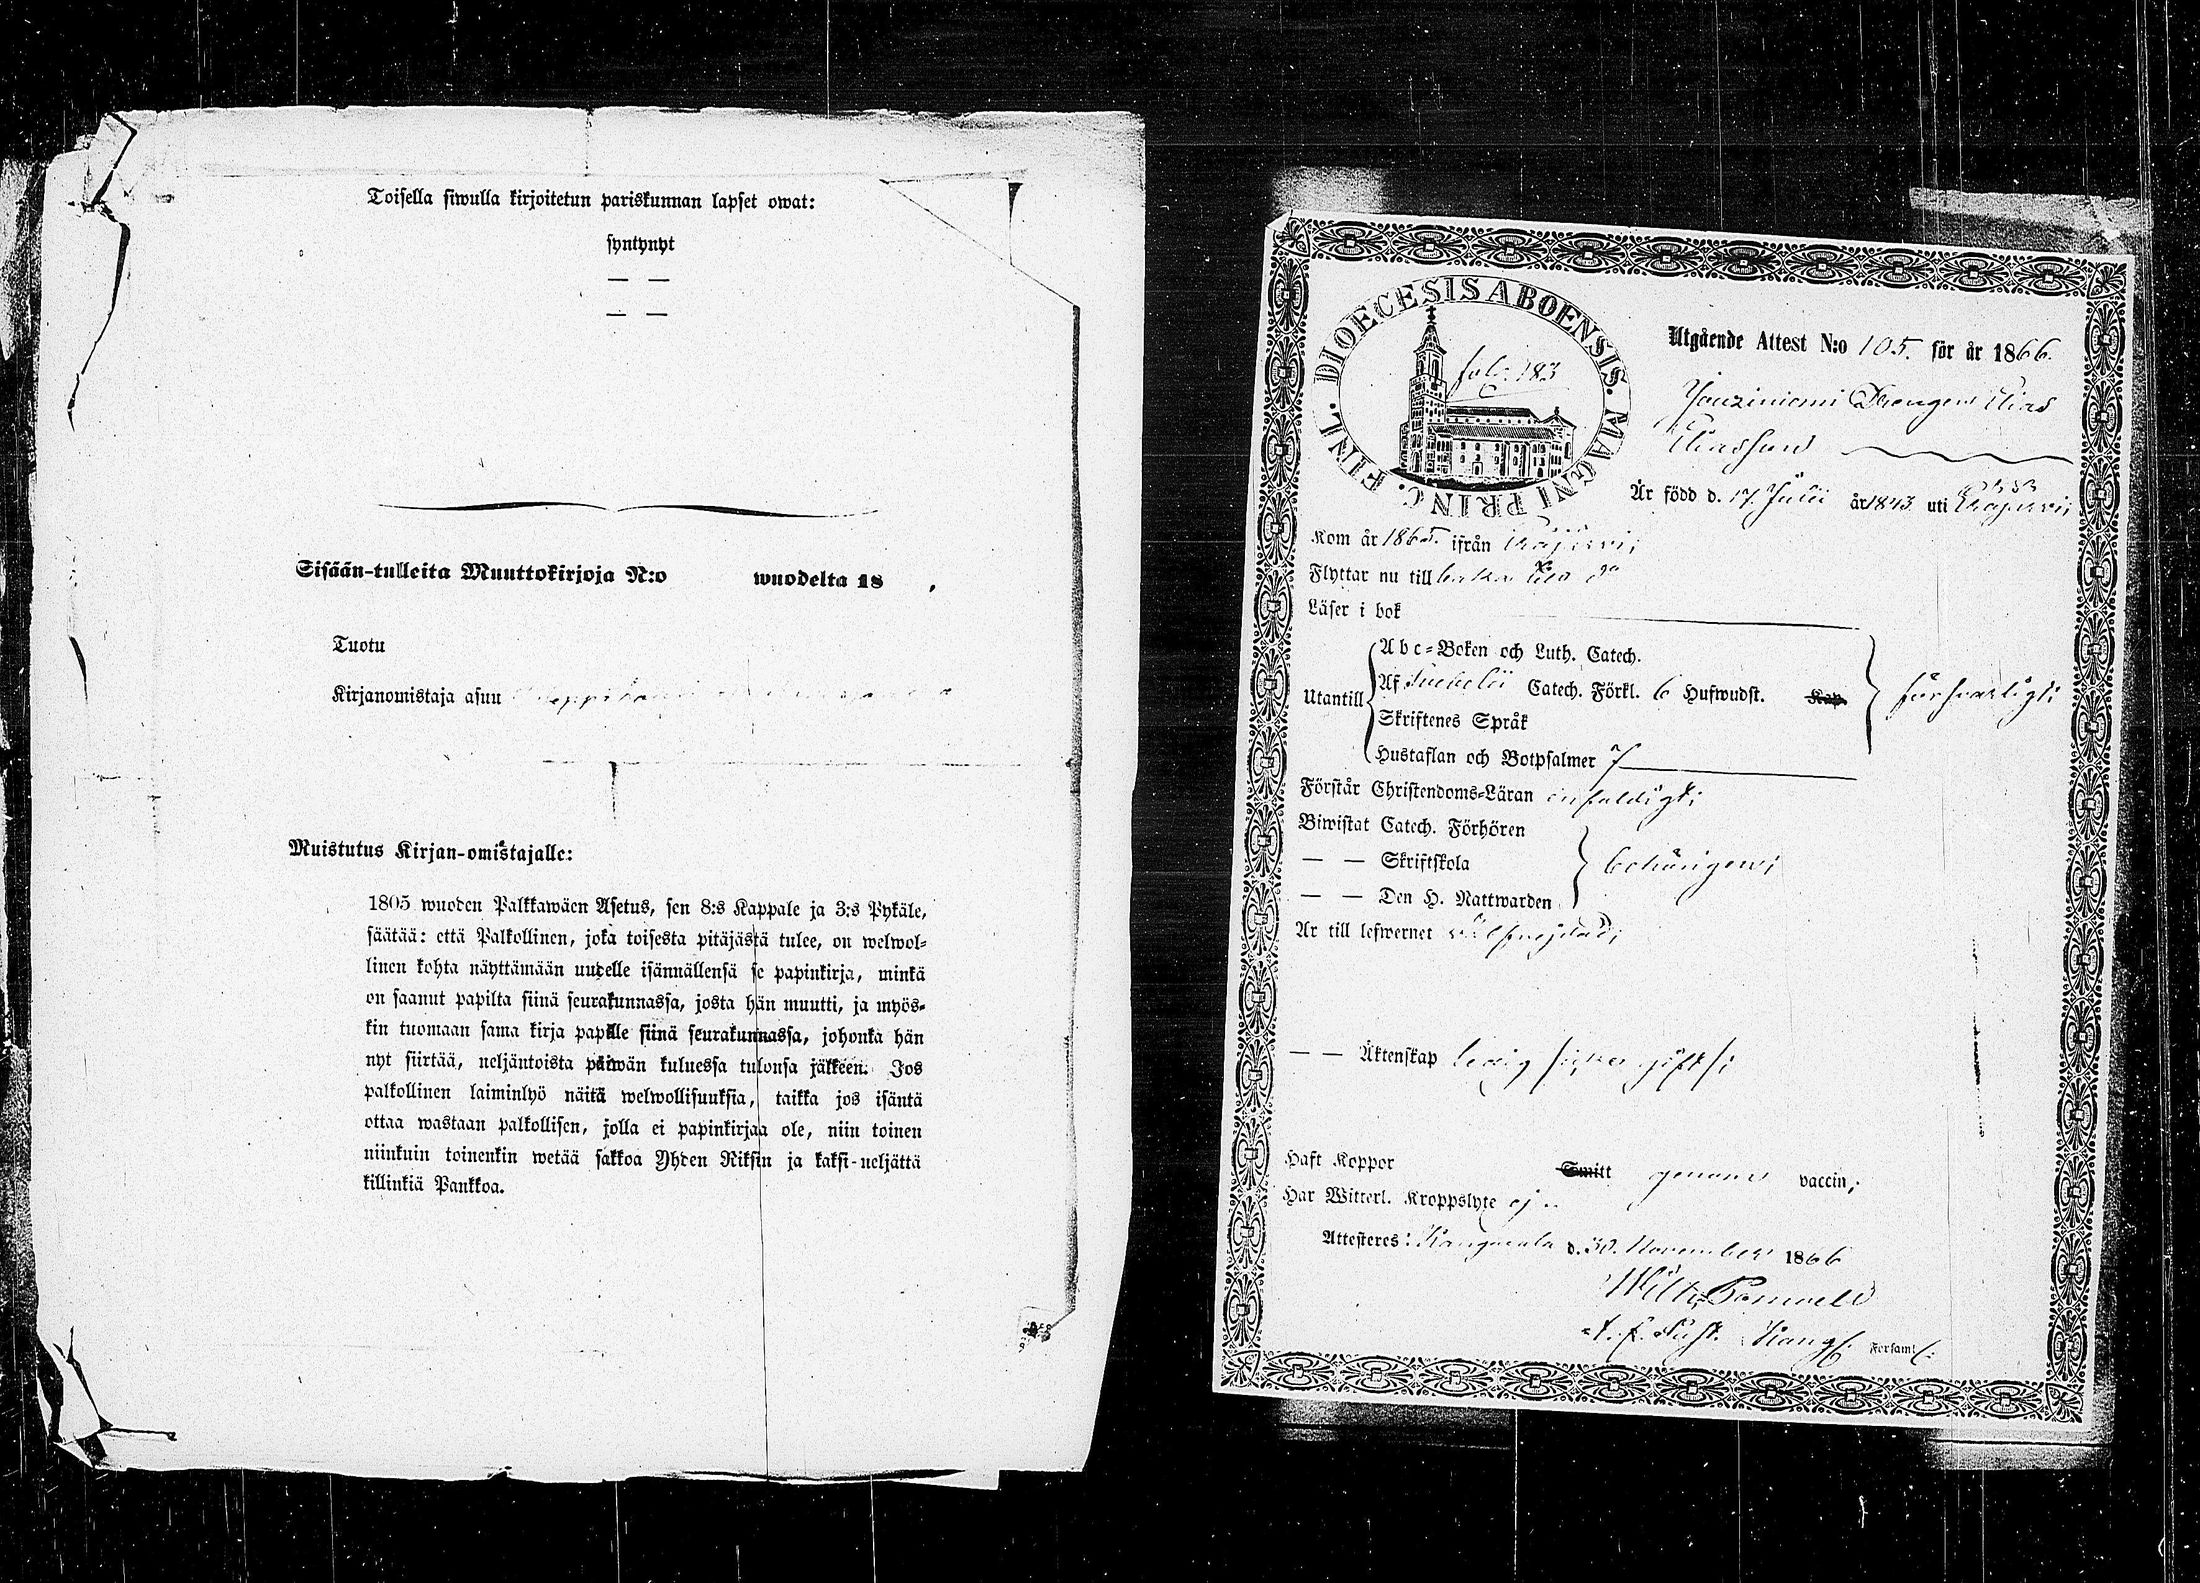 Toisella siwulla kirjoitetun pariskunnan lapset owat:
syntynyt
— —
— —
Sisään-tulleita Muuttokirjoja N:o wuodelta 18 .
Tuotu
Kirjanomistaja asuu
Muistutus Kirjan-omistajalle:
1805 wuoden Palkkawäen Asetus, sen 8:s Kappale ja 3:s Pykäle,
säätää: että Palkollinen, joka toisesta pitäjästä tulee, on welwol-
linen kohta näyttämään uudelle isännällensä se papinkirja, minkä
on saanut papilta siinä seurakunnassa, josta hän muutti, ja myös-
kin tuomaan sama kirja papille siinä seurakunnassa, johonka hän
nyt siirtää, neljäntoista päiwän kuluessa tulonsa jälkeen. Jos
palkollinen laiminlyö näitä welwollisuuksia, taikka jos isäntä
ottaa wastaan palkollisen, jolla ei papinkirjaa ole, niin toinen
niinkuin toinenkin wetää sakkoa Yhden Riksin ja kaksi-neljättä
killinkiä Pankkoa.
DIOECESIS ABOENSIS. MAGNI PRINC. FINL.
fol: 183
Utgående Attest N:o 105. för år 1866.
Drengen Elias
Eliasson
Är född d. 17 Julii år 1843 uti
Kom år 1865 ifrån
Flyttar nu till
Läser i bok
Utantill
Abc-Boken och Luth. Catech.
Af Svebelii Catech. Förkl. 6 Hufwudst. Kap.
Skriftenes Språk
Hustaflan och Botpsalmer 7
försvarligt;
Förstår Christendoms-Läran enfaldigt;
Biwistat Catech. Förhören
— — Skriftskola
— — Den H. Nattwarden
behörigen;
Är till lefwernet välfrejdad;
— — Äktenskap ledig
Haft Koppor Smitt genom vaccin;
Har Witterl. Kroppslyte ej
Attesteres: Kangasala d. 30. November 1866
Kang. Forsaml: